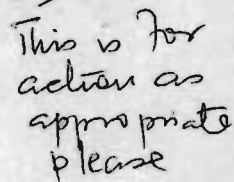 This is for
action as
appropriate
please